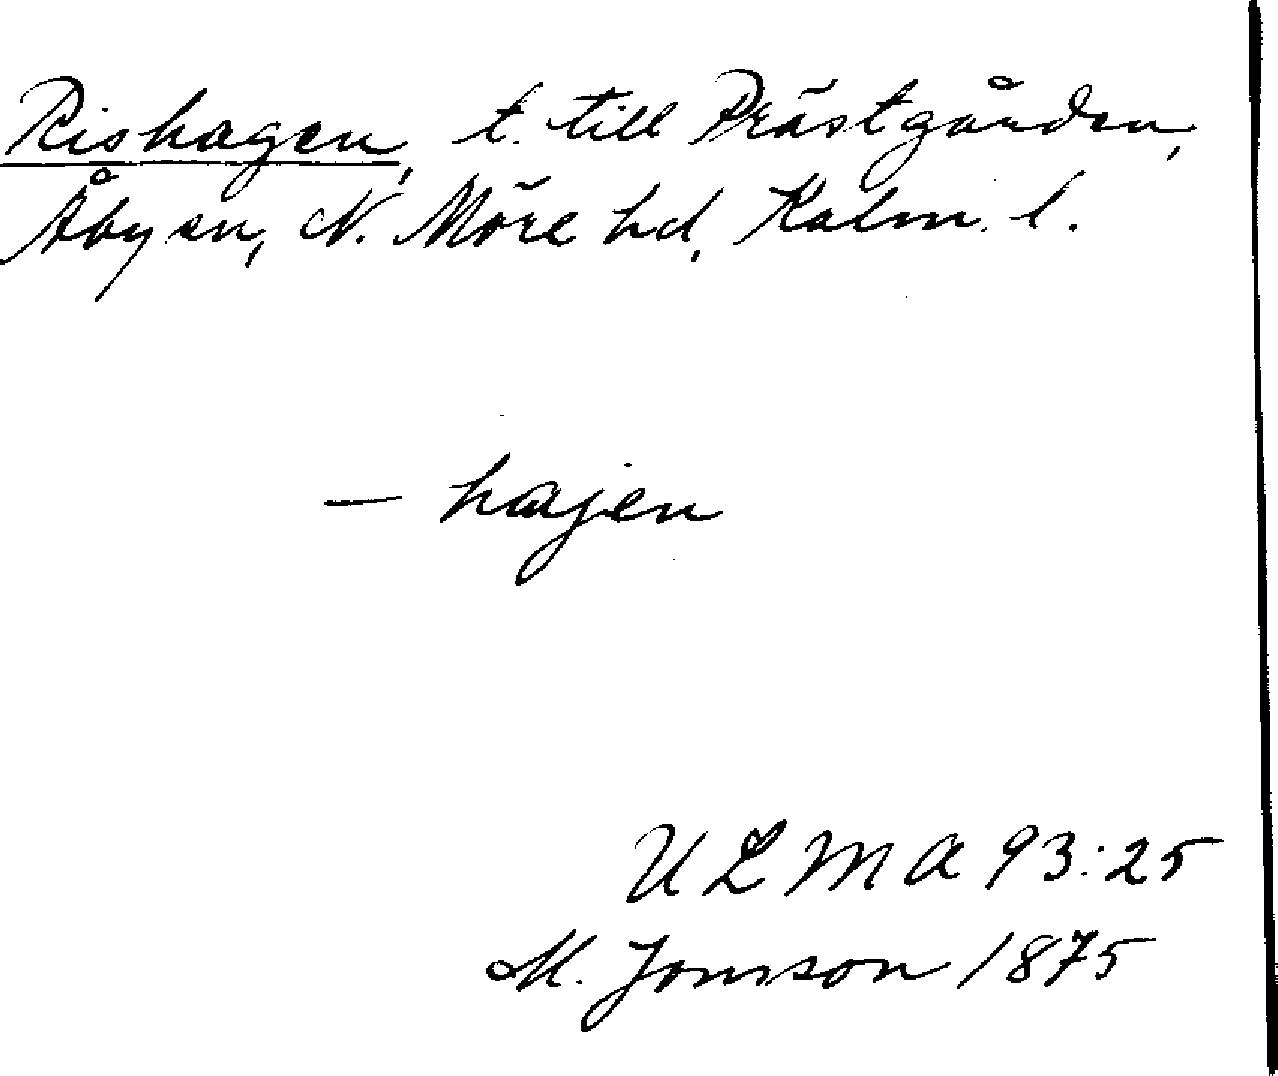 Rishagen, t. till Prästgården,
Åby sn, N. Möre hd, Kalm. l.
– hajen
ULMA 93:25
M. Jonsson 1875